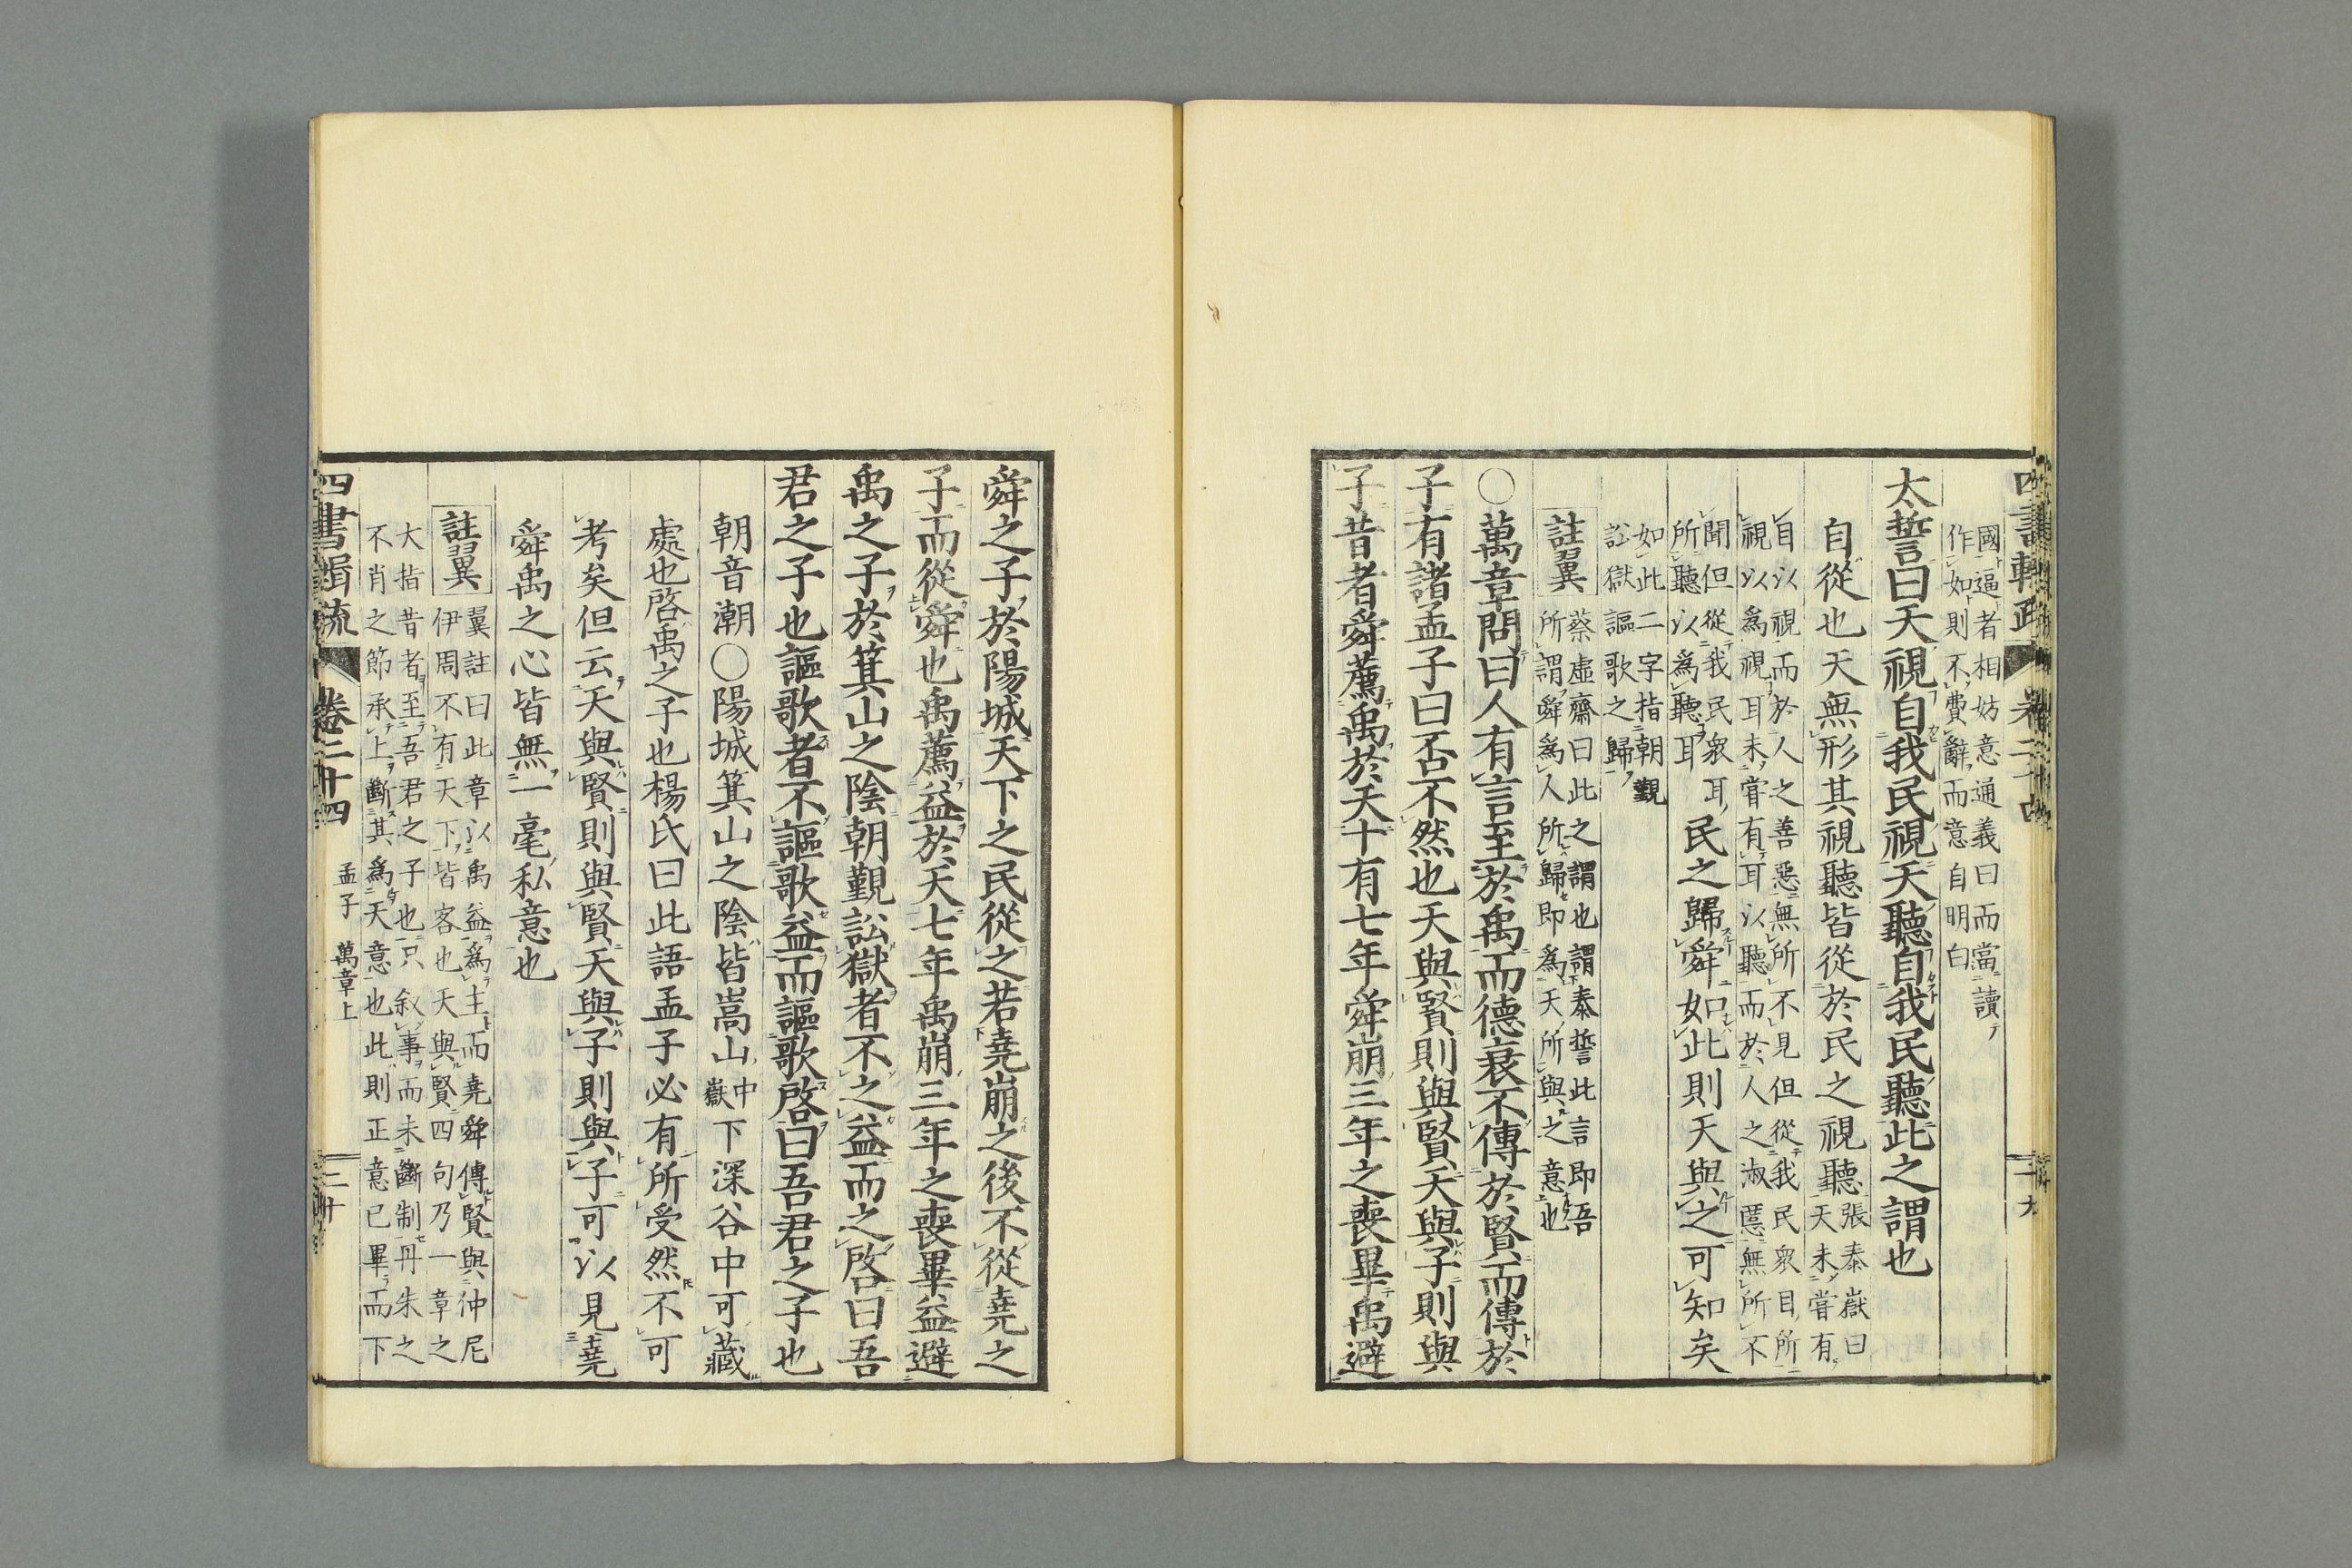 國逼者相妨意通義曰而當讀
作如則不費辭而意自明白
太誓曰天視自我民視天聽自我民聽此之謂也
自從也天無形其視聽皆從於民之視聽張泰嶽曰
天未嘗有
目以視而於人之善惡無所不見但從我民眾目所
視以爲視耳未嘗有耳以聽而於人之淑慝無所不
聞但從我民眾耳
所聽以爲聽耳
民之歸舜如此則天與之可知矣
如此二字指朝覲
訟獄謳歌之歸
註翼
蔡虛齋曰此之謂也謂泰誓此言即吾
所謂舜爲人所歸即爲天所與之意也
○萬章問曰人有言至於禹而德衰不傳於賢而傳於
子有諸孟子曰否不然也天與賢則與賢天與子則與
子昔者舜薦禹於天十有七年舜崩三年之喪畢禹避
卷二十四
十九
舜之子於陽城天下之民從之若堯崩之後不從堯之
子而從舜也禹薦益於天七年禹崩三年之喪畢益避
禹之子於箕山之陰朝覲訟獄者不之益而之啓曰吾
君之子也謳歌者不謳歌益而謳歌啓曰吾君之子也
朝音潮○陽城箕山之陰皆嵩山中
嶽下深谷中可藏
處也啓禹之子也楊氏曰此語孟子必有所受然不可
考矣但云天與賢則與賢天與子則與子可以見堯
舜禹之心皆無一毫私意也
註翼
翼註曰此章以禹益爲主而堯舜傳賢與仲尼
伊周不有天下皆客也天與賢四句乃一章之
大指昔者至吾君之子也只叙事而未斷制丹朱之
不肖之節承上斷其爲天意也此則正意已畢而下
四書輯疏
卷二十四
孟子 萬章上
二十